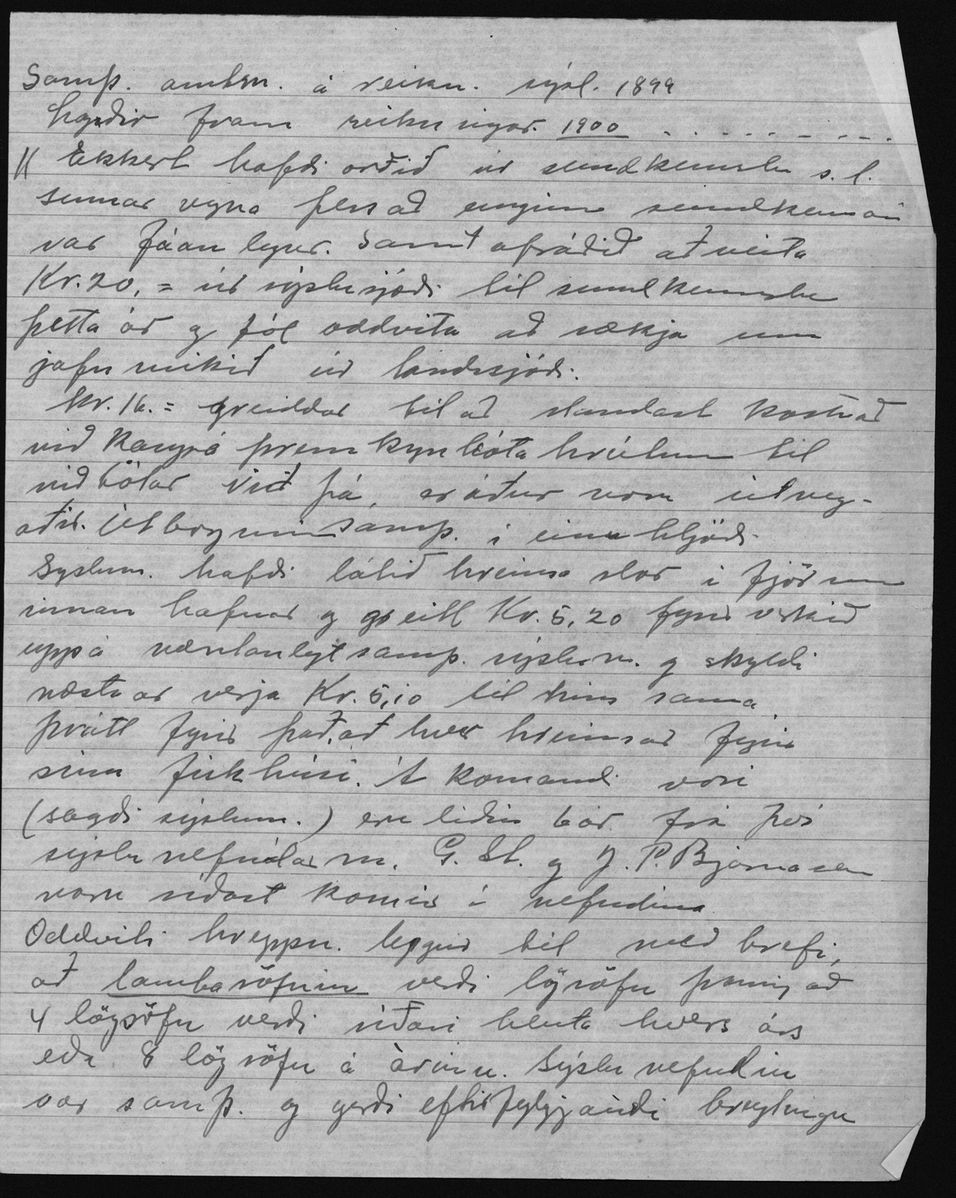 Samþ. ambsn. á reikn. sýsl. 1899
lagðir fram reikningar. 1900 . - . - - - - -
Ekkert hafði orðið úr sundkenslu s.l.
sumar vegna þess að enginn sundkennari
var fáanlegur. Samt afráðið að veita
Kr. 20,= úr sýslusjóði til sundkenslu
þetta ár og fól oddvita að sækja um
jafn mikið úr landssjóði.
Kr. 16.= greiddar til að standast kostnað
við Kaup á þrem kynbóta hrútum til
viðbótar við þá, er áður voru útveg-
aðir. samþ. í einu hljóði.
Syslum. hafði látið hreinsa slor í fjörunni
innan hafnar og greitt Kr. 5,20 fyrir verkið
uppá væntanlegt samþ. sýslun. og skyldi
næsta ár verja Kr. 5,10 til hins sama
þrátt fyrir það, að hver hreinsar fyrir
sínu fiskhúsi. Á komandi vori
(sagði sýslum.) eru liðin 6 ár frá því
sýslunefndarm. G. St. og J. P. Bjarnasen
voru síðast kosnir í nefndina
Oddviti hreppsn. leggur til með brefi,
að lambasöfnin verði lögsöfn þannig að
4 lögsöfn verði síðari hluta hvers árs
eða 8 lögsöfn á árinu. Sýslunefndin
var samþ. og gerði eftirfylgjandi breytingu